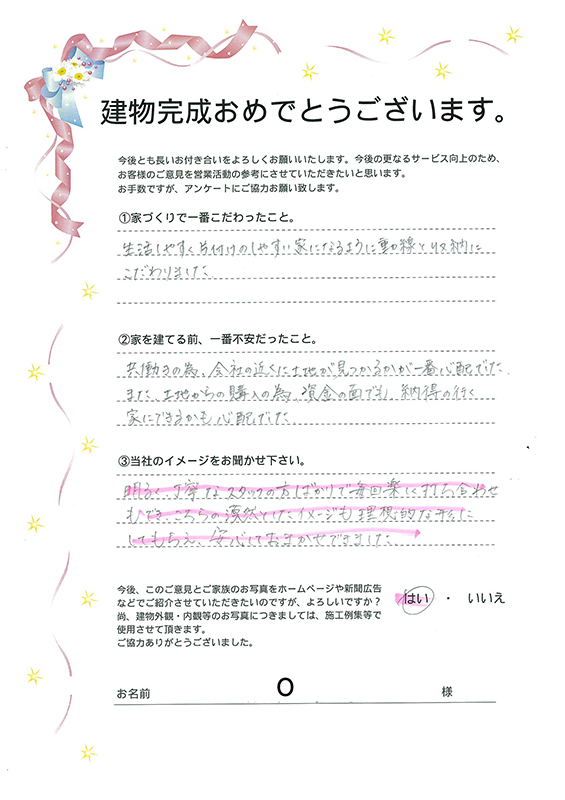 建物完成おめでとうございます。
今後とも長いお付き合いをよろしくお願いいたします。今後の更なるサービス向上のため、
お客様のご意見を営業活動の参考にさせていただきたいと思います。
お手数ですが、アンケートにご協力お願い致します。
①家づくりで一番こだわったこと。
生活しやすく片付けのしやすい家になるように動線と収納に
こだわりました
②家を建てる前、一番不安だったこと。
共働きの為、会社の近くに土地が見つかるかが一番心配でした。
また、土地からの購入の為、資金の面でも、納得の行く
家にできるかも心配でした
③当社のイメージをお聞かせ下さい。
明るく、丁寧なスタッフの方ばかりで毎回楽しく打ち合わせ
もでき、こちらの漠然としたイメージも理想的な形に
してもらえ、安心しておまかせできました
今後、このご意見とご家族のお写真をホームページや新聞広告
などでご紹介させていただきたいのですが、よろしいですか？
はい ・ いいえ
尚、建物外観・内観等のお写真につきましては、施工例集等で
使用させて頂きます。
ご協力ありがとうございました。
お名前 O 様